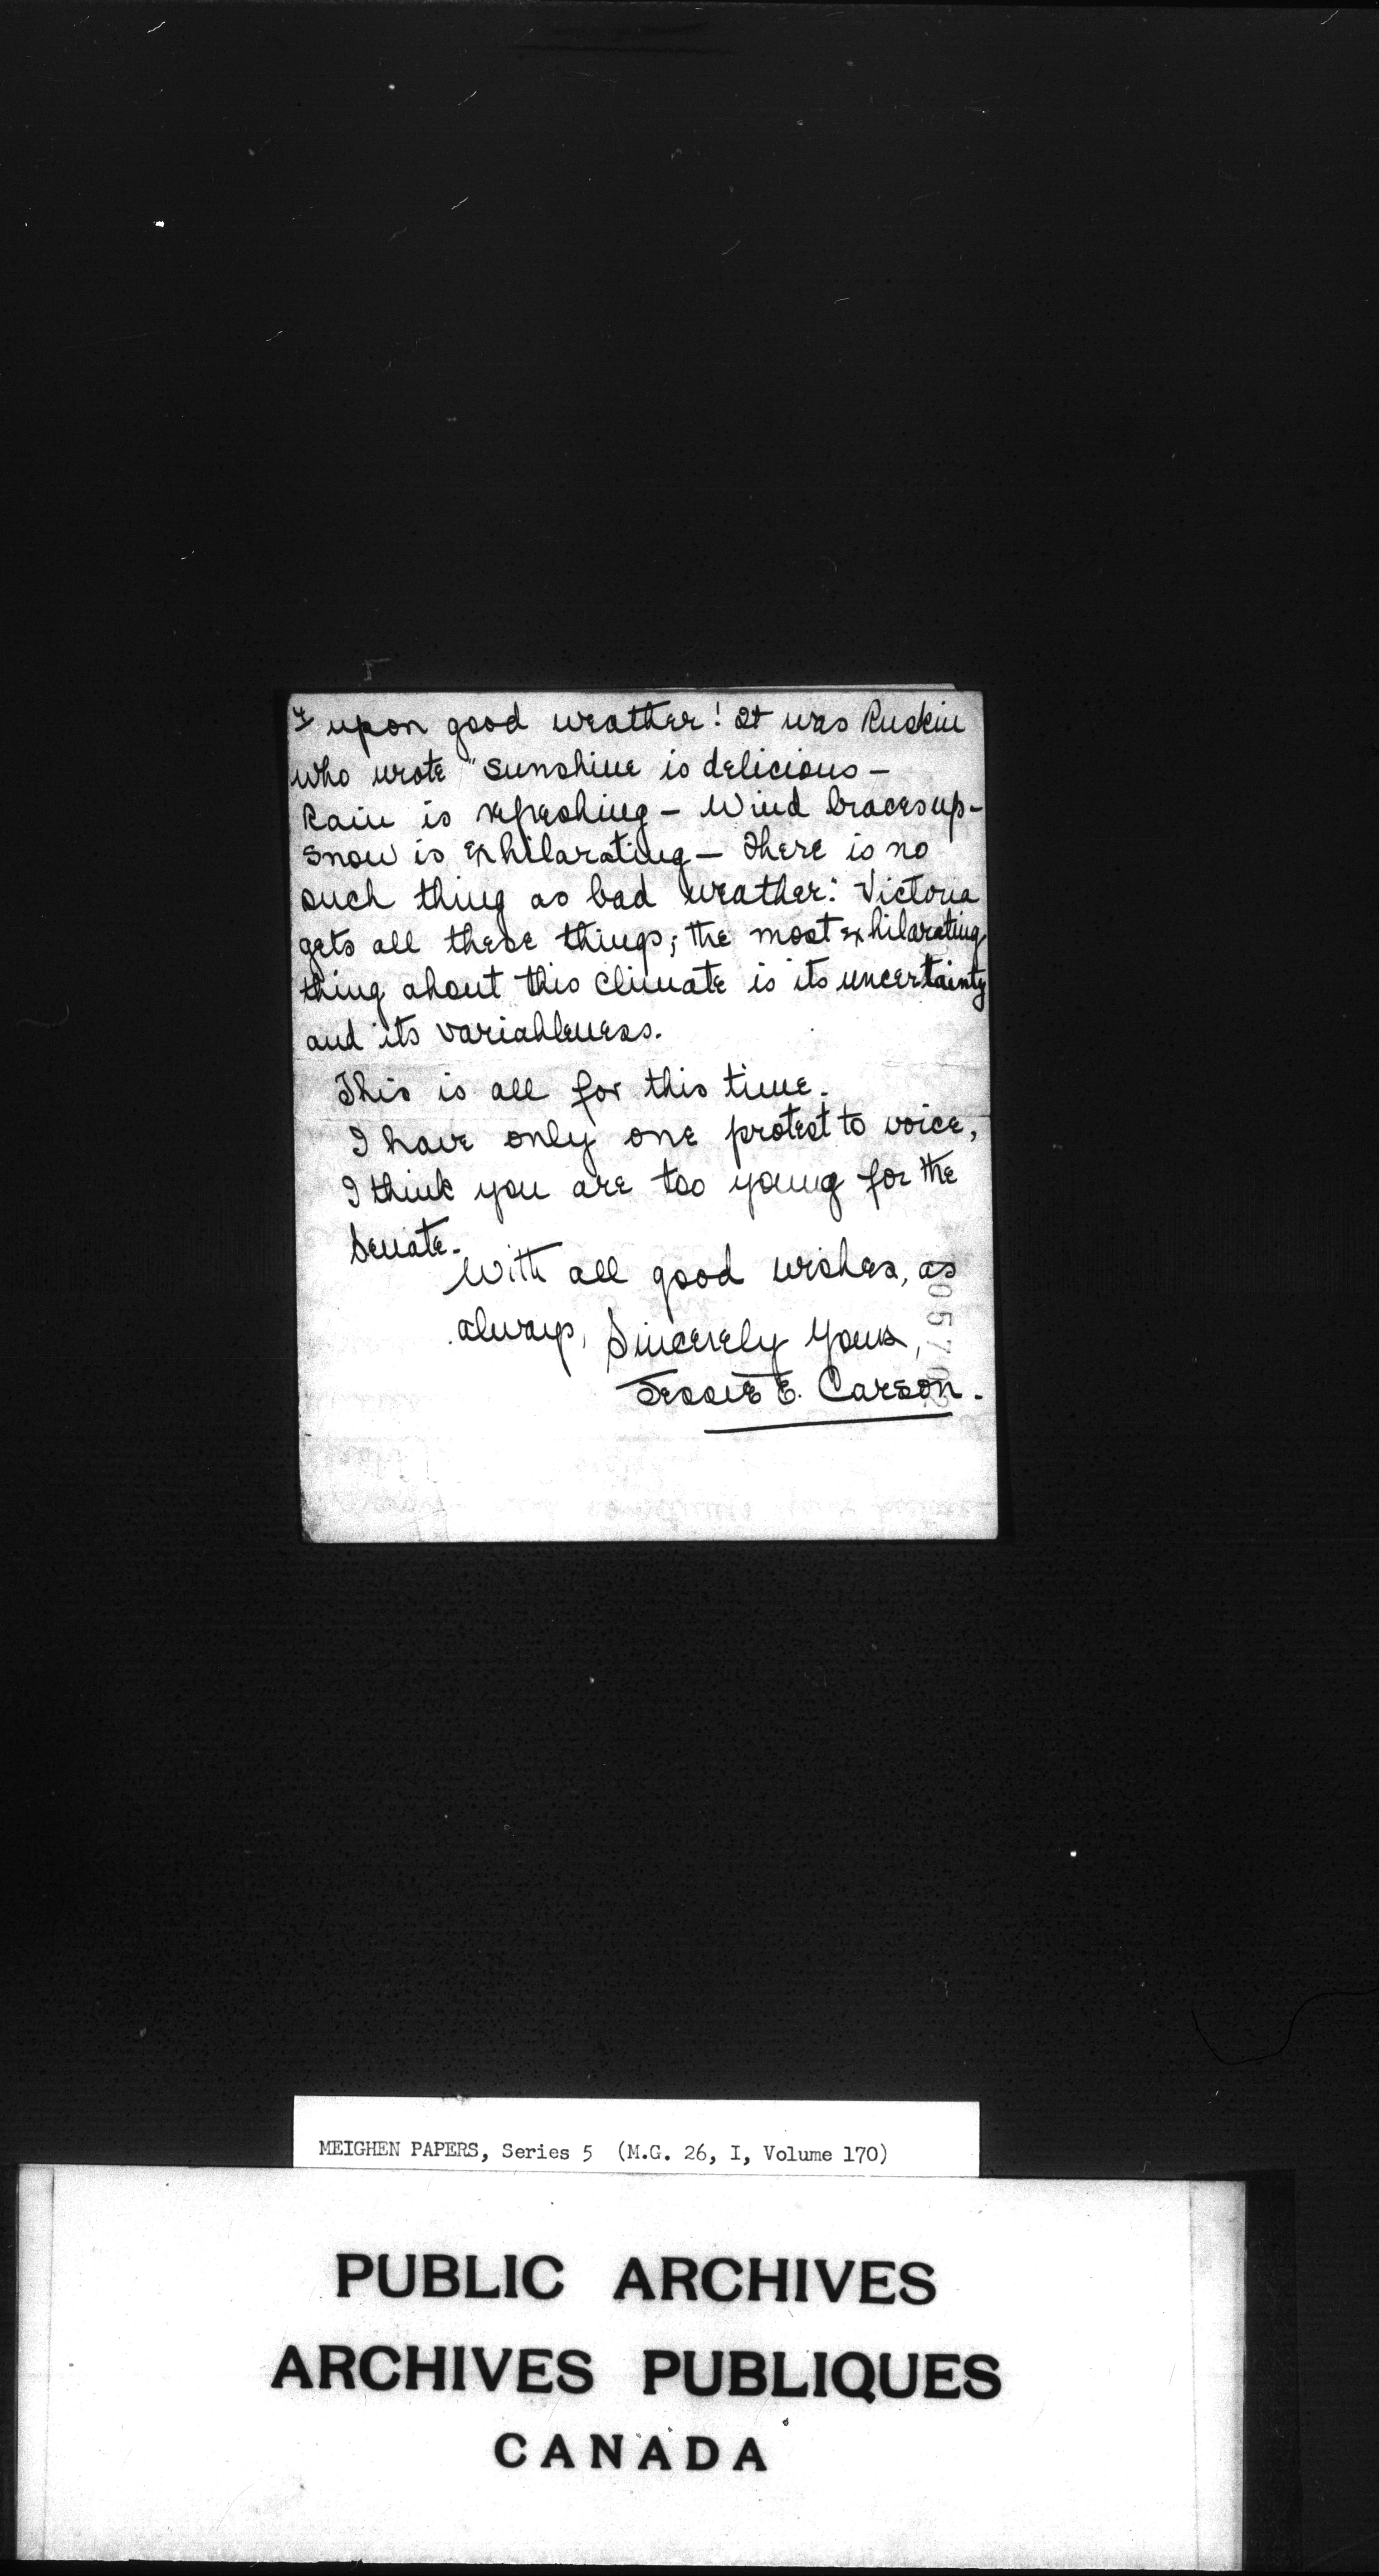 4/ upon good weather! It was Ruskin
who wrote "Sunshine is delicious -
Rain is refreshing - Wind braces up -
Snow is exhilarating - There is no
such thing as bad weather." Victoria
gets all these things; the most exhilarating
thing about this climate is its uncertainty
and its variableness.
This is all for this time.
I have only one protest to voice,
I think you are too young for the
Senate.
With all good wishes, as
always, Sincerely Yours,
Jessie E. Carson.
MEIGHEN PAPERS, Series 5 (M.G. 26, I, Volume 170)
PUBLIC ARCHIVES
ARCHIVES PUBLIQUES
CANADA